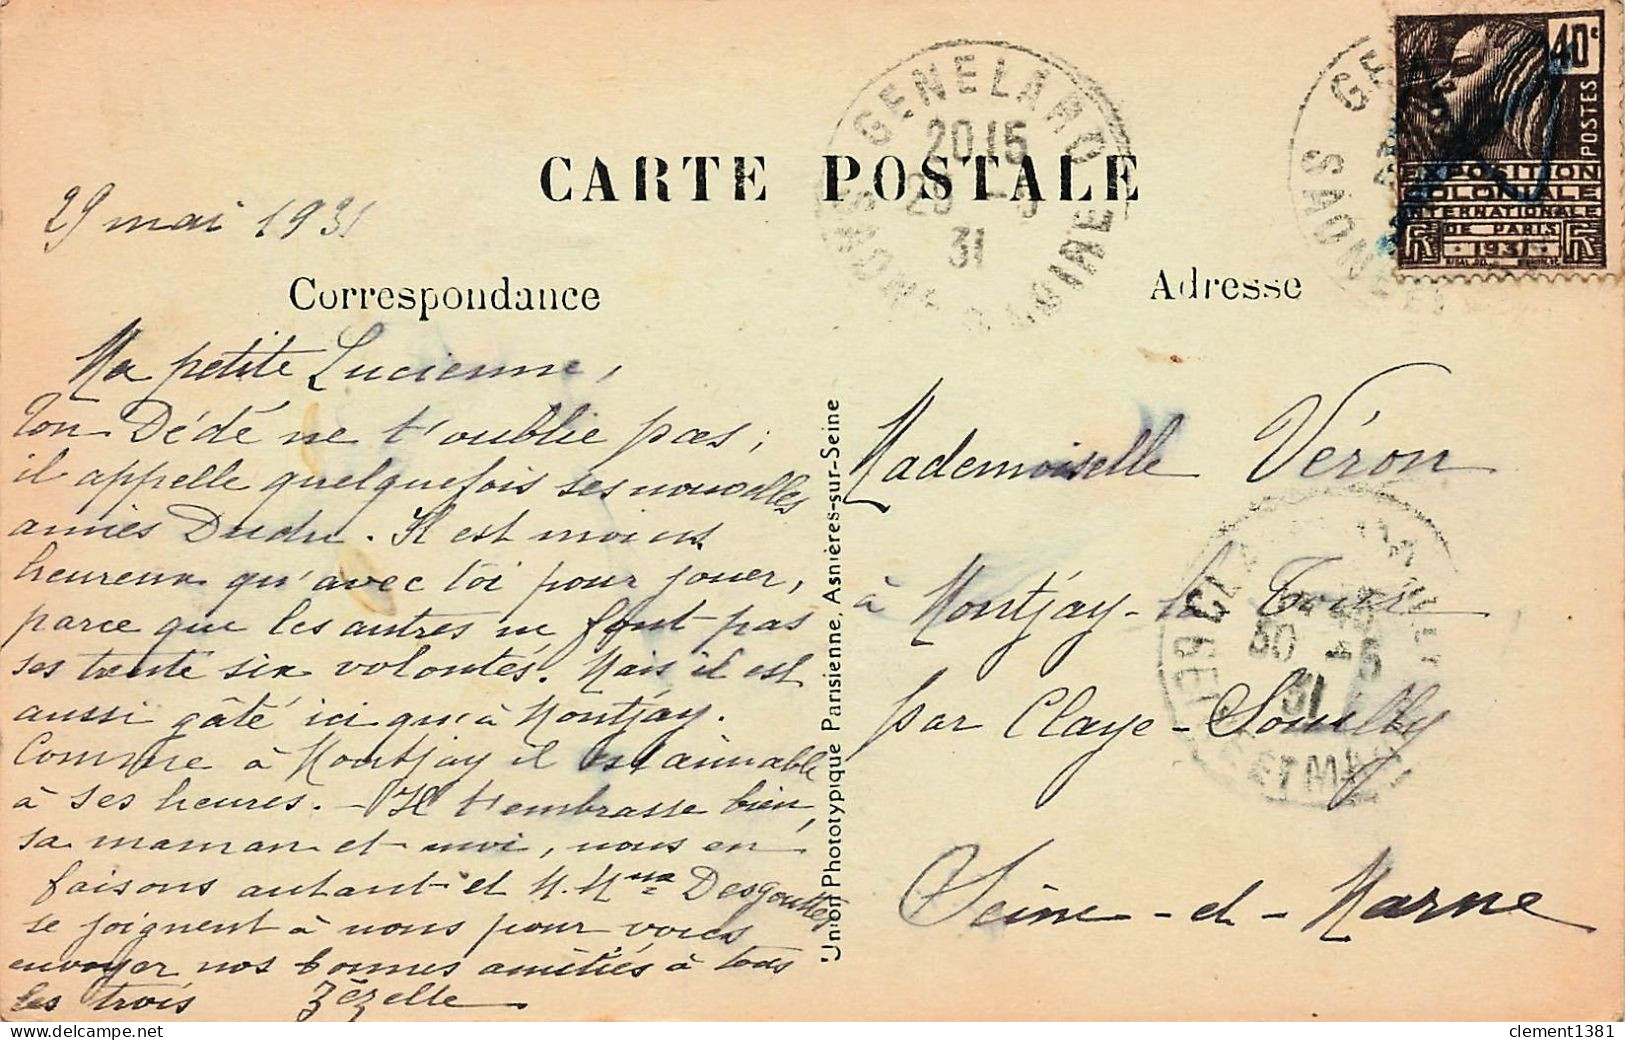 CARTE POSTALE
29 mai 1931
Correspondance
Ma petite Lucienne,
Ton Dédé ne t'oublie pas ;
il appelle quelquefois ses nouvelles
amies Dudu. Il est moins
heureux qu'avec toi pour jouer,
parce que les autres ne font pas
ses trente six volontés. Mais il est
aussi gâté ici qu'à Montjay.
Comme à Montjay il est aimable
à ses heures. - Il t'embrasse bien,
sa maman et moi, nous en
faisons autant et M. Mme Desgouttes
se joignent à nous pour vous
envoyer nos bonnes amitiés à tous
les trois Zézelle
Union Phototypique Parisienne, Asnières-sur-Seine
GENELARD
20 15
31
SAONE ET LOIRE
40c
POSTES
EXPOSITION
COLONIALE
INTERNATIONALE
DE PARIS
1931
RF
GE
SAONE
Adresse
Mademoiselle Véron
à Montjay-la Tour
par Claye-Souilly
Seine-et-Marne
30 -5
31
ET MARNE
clement1381